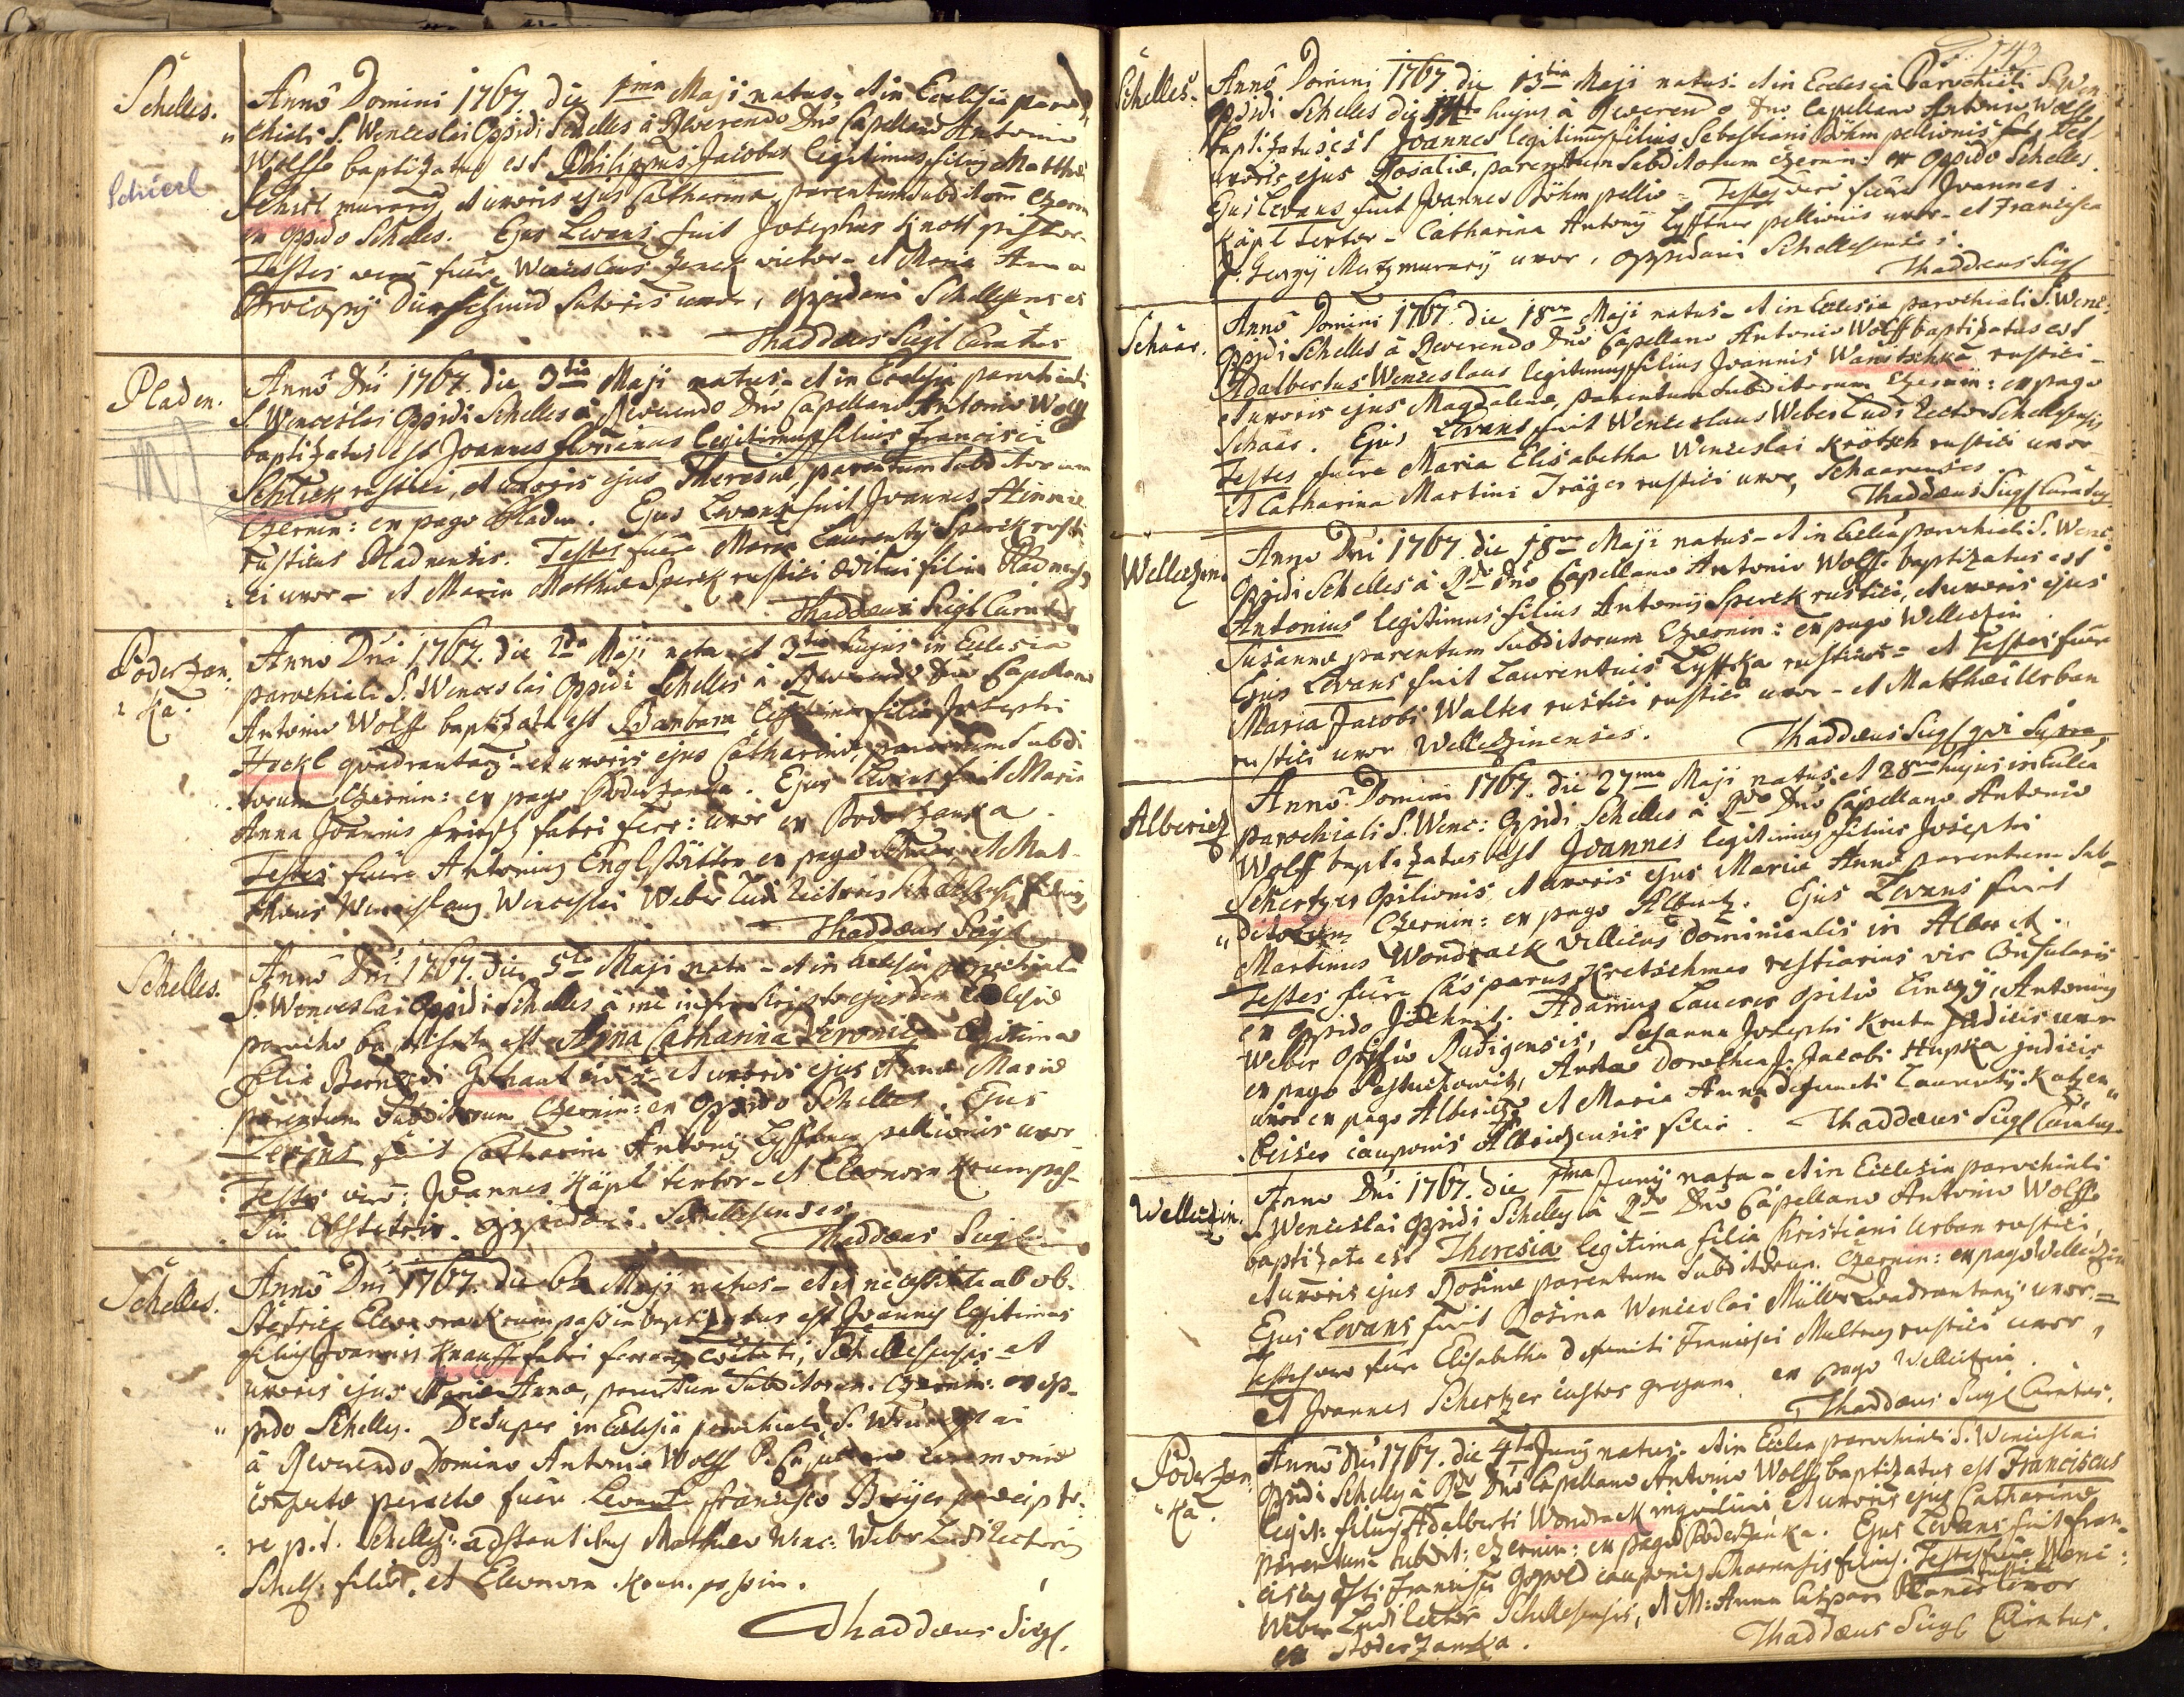 Schelles.
Anno Domini 1767. die 1ma Maji natus, et in Ecclesia paro-
chiali S. Wenceslai Oppidi Schelles à Reverendo Dno Capellano Antonio
Wolff baptizatus est Philippus Jacobus legitimus filius Matthiae
Schierl
Schirl murarij et uxoris ejus Catharinae, parentum subditorum Czernin
ex oppido Schelles. Ejus Levans fuit Josephus Knott pistor.
Testes vero fuere Wenceslaus vietor - et Maria Anna
Procopij sutoris uxor, oppidani Schellesenses
Thaddaeus Siegl Curatus
Pladen.
Anno Dni 1767. die 3tia Maji natus - et in Ecclesia parochiali
S. Wenceslai Oppidi Schelles à Reverendo Dno Capellano Antonio Wolff
baptizatus est Joannes Florianus legitimus filius Francisci
Schlick rustici, et uxoris ejus Theresiae, parentum subditorum
Czernin: ex pago Pladen. Ejus Levans fuit Joannes
rusticus Pladnensis. Testes fuere Maria Laurentij Sperck rusti-
ci uxor - et Maria Matthiae Sperck rustici aeditui filia Pladnenses
Thaddaeus Siegl Curatus
Poderzan-
ka.
Anno Dni 1767. die 2da Maji nata et 3tia hujus in Ecclesia
parochiali S. Wenceslai Oppidi Schelles à Reverendo Dno Capellano
Antonio Wolff baptizata est Barbara legitima filia Josephi
Hockl quadrantarij - et uxoris ejus Catharinae, parentum subdi-
torum Czernin: ex pago Poderzanka. Ejus Levans fuit Maria
Anna Joannis fabri ferr: uxor ex Poderzanka.
Testes fuere Antonius ex pago et Mat-
Wenceslaus Wenceslai Weber Ludi Rectoris
Thaddaeus Siegl
Schelles.
Anno Dni 1767. die 5ta Maji nata - et in Ecclesia parochiali
S. Wenceslai Oppidi Schelles à me infra scripto ejusdem Ecclesiae
parocho baptizata est Anna Catharina Veronica legitima
filia Bernardi et uxoris ejus Annae Mariae
parentum subditorum Czernin: ex Oppido Schelles. Ejus
Levans fuit Catharina Antonij Lyfftner pellionis uxor -
Testes vero: Joannes Käpl textor - et Eleonora Krumpas-
sin Obstetrix. oppidani Schellesenses.
Thaddaeus Siegl
Schelles.
Anno Dni 1767. die 6ta Maji natus - et in necessitate ab ob-
stetrice Eleonora Krumpaßin baptizatus est Joannes legitimus
filius Joannis Knauss fabri ferrarij Schellesensis - et
uxoris ejus Mariae Annae, parentum subditorum Czernin: ex op-
pido Schelles. Desuper in Ecclesia parochiali S. Wenceslai
à Reverendo Domino Antonio Wolff
peractae fuere Levante Francisco
re p.t. Schelles: adstantibus Mathaeo Wenc: Weber Ludi Rectoris
Schell: filio, et Eleonora Krumpassin.
Thaddaeus Siegl.
143
Schelles.
Anno Domini 1767. die 13tia Maji natus - et in Ecclesia Parochiali S. Wen
Oppidi Schelles die 14ta hujus à Reverendo Dno Capellano Antonio Wolff
baptizatus est Joannes legitimus filius Sebastiani Böhm pellionis et
uxoris ejus Rosaliae, parentum subditorum Czernin: ex Oppido Schelles.
Ejus Levans fuit Joannes Böhm pellio - Testes vero fuere Joannes
Käpl textor - Catharina Antonij Lyfftner pellionis uxor - et Francisca
Georgij Metz murarij uxor, oppidani Schellesenses.
Thaddaeus Siegl
Schaar.
Anno Domini 1767. die 18va Maji natus - et in Ecclesia parochiali S. Wenc:
Oppidi Schelles à Reverendo Dno Capellano Antonio Wolff baptizatus est
Adalbertus Wenceslaus legitimus filius Joannis Wanitschka rustici -
et uxoris ejus Magdalenae, parentum subditorum Czernin: ex pago
Schaar. Ejus Levans fuit Wenceslaus Weber Ludi Rector Schellesensis
Testes fuere Maria Elisabetha Wenceslai Krötsch rustici uxor
et Catharina Martini Träger rustici uxor, Schaarenses.
Thaddaeus Siegl Curatus
Welleczin.
Anno Dni 1767. die 18va Maji natus - et in Ecclesia parochiali S. Wenc
Oppidi Schelles à Rdo Dno Capellano Antonio Wolff baptizatus est
Antonius legitimus filius Antonij Sperck rustici, et uxoris ejus
Susannae parentum subditorum Czernin: ex pago Welleczin.
Ejus Levans fuit Laurentius Lyffka rusticus - et Testes fuere
Maria Jacobi Walter rustici rustici uxor - et Matthaei Urban
rustici uxor Welleczinenses.
Thaddaeus Siegl qui supra
Albericz
Anno Domini 1767. die 27ma Maji natus, et 28va hujus in Ecclesia
parochiali S. Wenc: Oppidi Schelles à Rdo Dno Capellano Antonio
Wolff baptizatus est Joannes legitimus filius Josephi
Schertzer opilionis, et uxoris ejus Mariae Annae parentum sub-
ditorum Czernin: ex pago Albericz. Ejus Levans fuit
Martinus Wondrack Villicus Dominicalis in Albericz.
Testes fuere Casparus Kretschmer restiarius vir Consularis
ex oppido Jechnitz. Adamus Lauerer opilio, Antonius
Weber Opilio Rudigensis, Susanna Josephi judicis uxor
ex pago Anna Dorothea Jacobi Hupka judicis
uxor ex pago Albericz, et Maria Anna defuncti Laurentij Katzen-
beisser cauponis Albericzensis filia. Thaddaeus Siegl Curatus
Welleczin.
Anno Dni 1767. die 1ma Junij nata - et in Ecclesia parochiali
S. Wenceslai Oppidi Schelles à Rdo Dno Capellano Antonio Wolff
baptizata est Theresia legitima filia Christiani Urban rustici,
et uxoris ejus Rosinae parentum subditorum Czernin: ex pago Welleczin
Ejus Levans fuit Rosina Wenceslai Müller Quadrantarij uxor =
Testes vero fuere Elisabetha defuncti Francisci rustici uxor,
et Joannes Schertzer custos gregum ex pago Welleczin.
Thaddaeus Siegl Curatus.
Poderzan-
ka.
Anno Dni 1767. die 4ta Junij natus - et in Ecclesia parochiali S. Wenceslai
Oppidi Schelles à Rdo Dno Capellano Antonio Wolff baptizatus est Franciscus
legit: filius Adalberti Wondrack inquilini et uxoris ejus Catharinae
parentum subdit: Czernin: ex pago Poderzanka. Ejus Levans fuit Fran-
ciscus Francisci cauponis Schaarensis filius. Testes fuere Wenc:
Weber Ludi Rector Schellesensis, et M: Anna Caspari uxor
ex Poderzanka.
Thaddaeus Siegl Curatus.